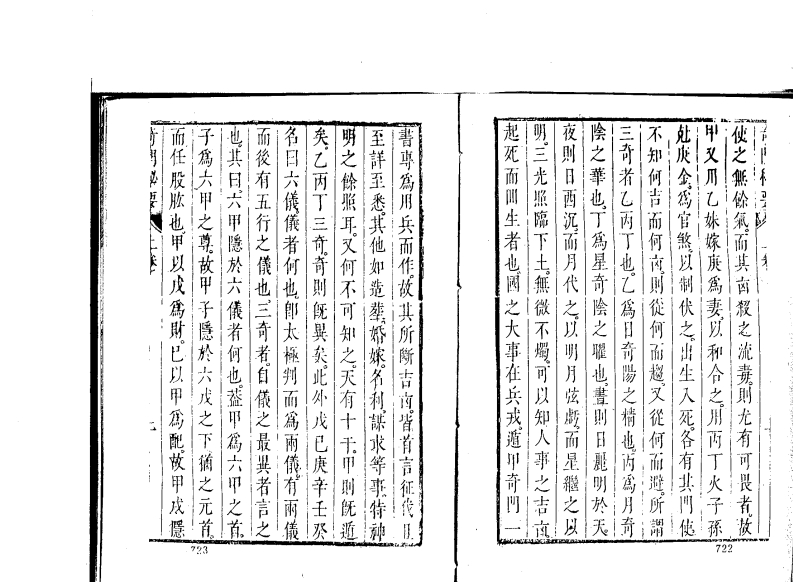 使之無餘氣而其凶殺之流毒則尤有可畏者故
甲又用乙妹嫁庚為妻以和合之用丙丁火子孫
尅庚金為官煞以制伏之出生入死各有其門使
不知何吉而何凶則從何而趨又從何而避所謂
三奇者乙丙丁也乙為日奇陽之精也丙為月奇
陰之華也丁為星奇陰之耀也晝則日麗明於天
夜則日西沉而月代之以明月弦虧而星繼之以
明三光照臨下土無微不燭可以知人事之吉凶
起死而回生者也國之大事在兵戎遁甲奇門一
722
書專為用兵而作故其所斷吉凶皆首言征伐且
至詳至悉其他如造葬婚嫁名利謀求等事特神
明之餘照耳又何不可知之天有十干甲則既遁
矣乙丙丁三奇奇則既異矣此外戊己庚辛壬癸
名曰六儀儀者何也卽太極判而為兩儀有兩儀
而後有五行之儀也三奇者自儀之最異者言之
也其曰六甲隱於六儀者何也葢甲為六甲之首
子為六甲之尊故甲子隱於六戊之下猶之元首
而任股肱也甲以戊為財己以甲為配故甲戌隱
奇門秘要
上卷
723